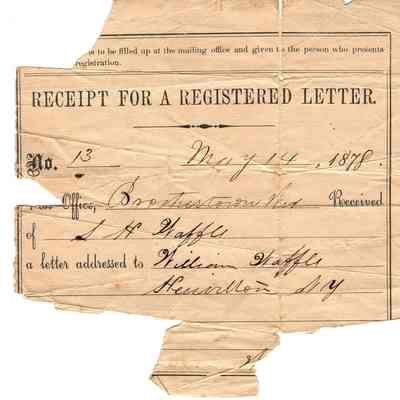 is to be filled up at the mailing office and given to the person who presents
registration.
RECEIPT FOR A REGISTERED LETTER.
No. 13 May 14, 1878.
Office, Received
of S H Waffle
a letter addressed to William Waffle
N Y